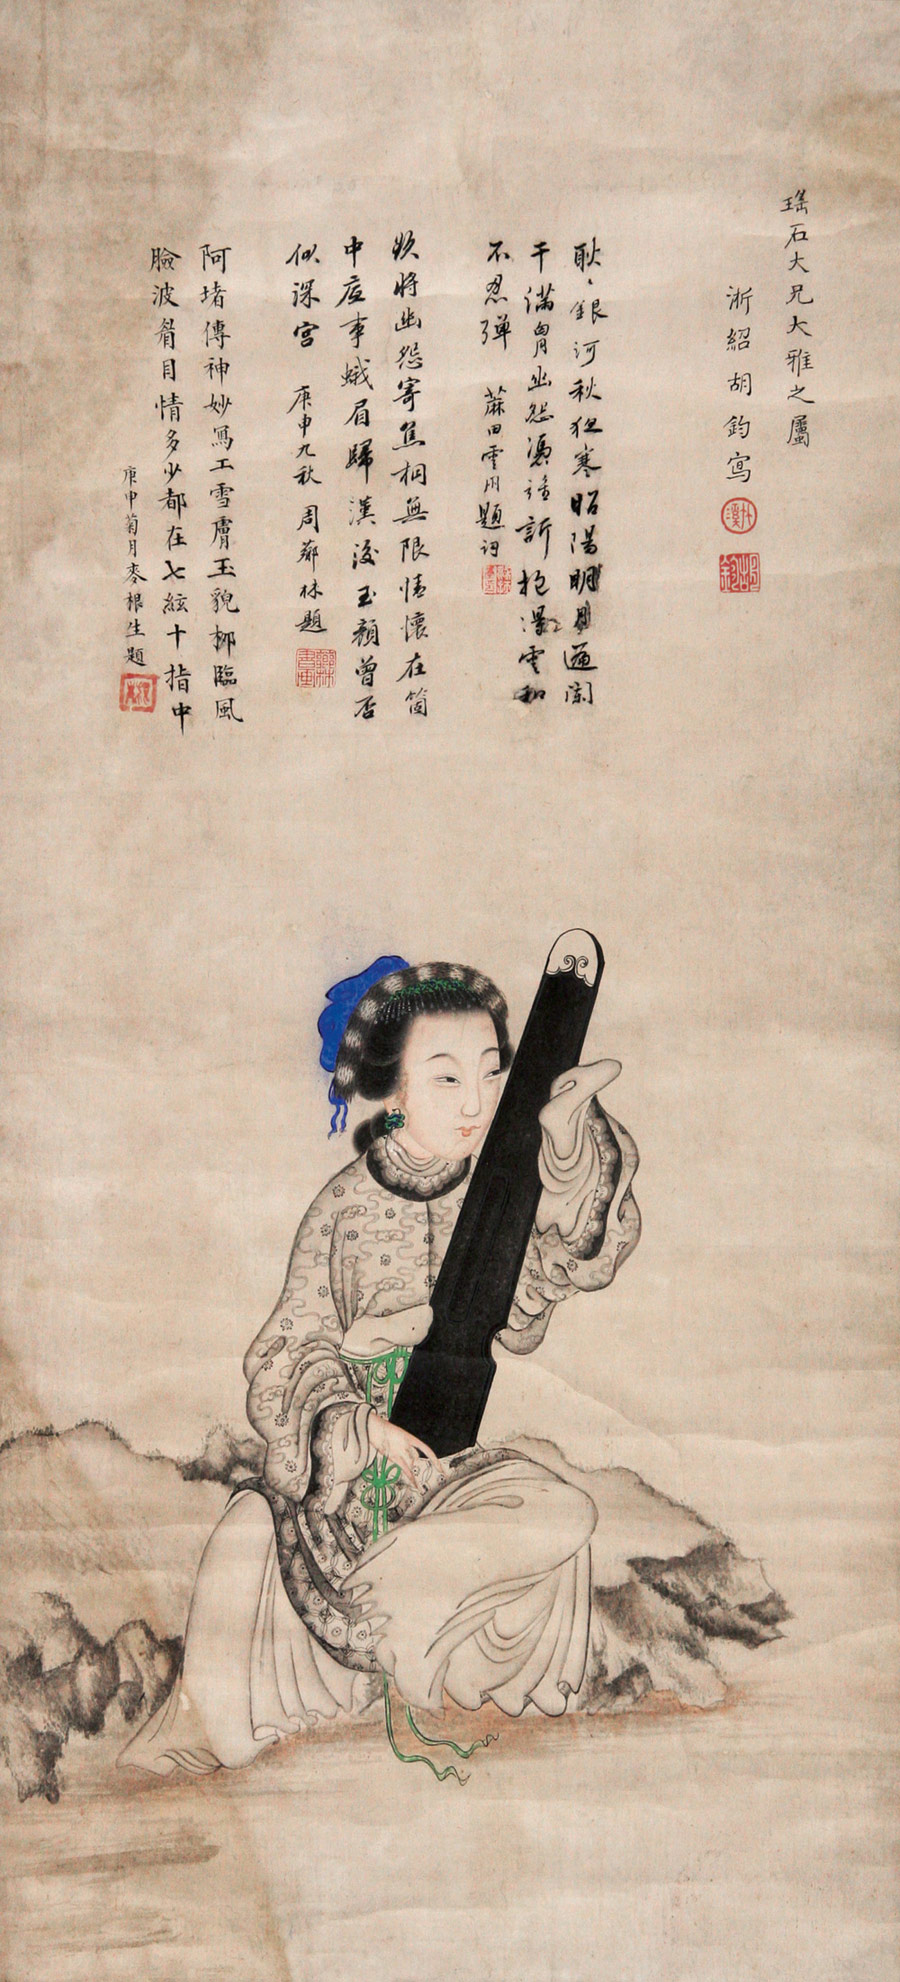 瑤石大兄大雅之屬
浙紹胡鈞寫
耿〻銀河秋夜寒昭陽明月遍闌
干滿胷幽怨憑誰訴抱得雲和
不忍彈 蔴田雲川題詞
欲將幽怨寄焦桐無限情懷在箇
中底事蛾眉歸漢後玉顏曾否
似深宮 庚申九秋 周薌林題
阿堵傳神妙寫工雪膚玉貌柳臨風
臉波眉目情多少都在七絃十指中
庚申菊月麥根生題
胡鈞